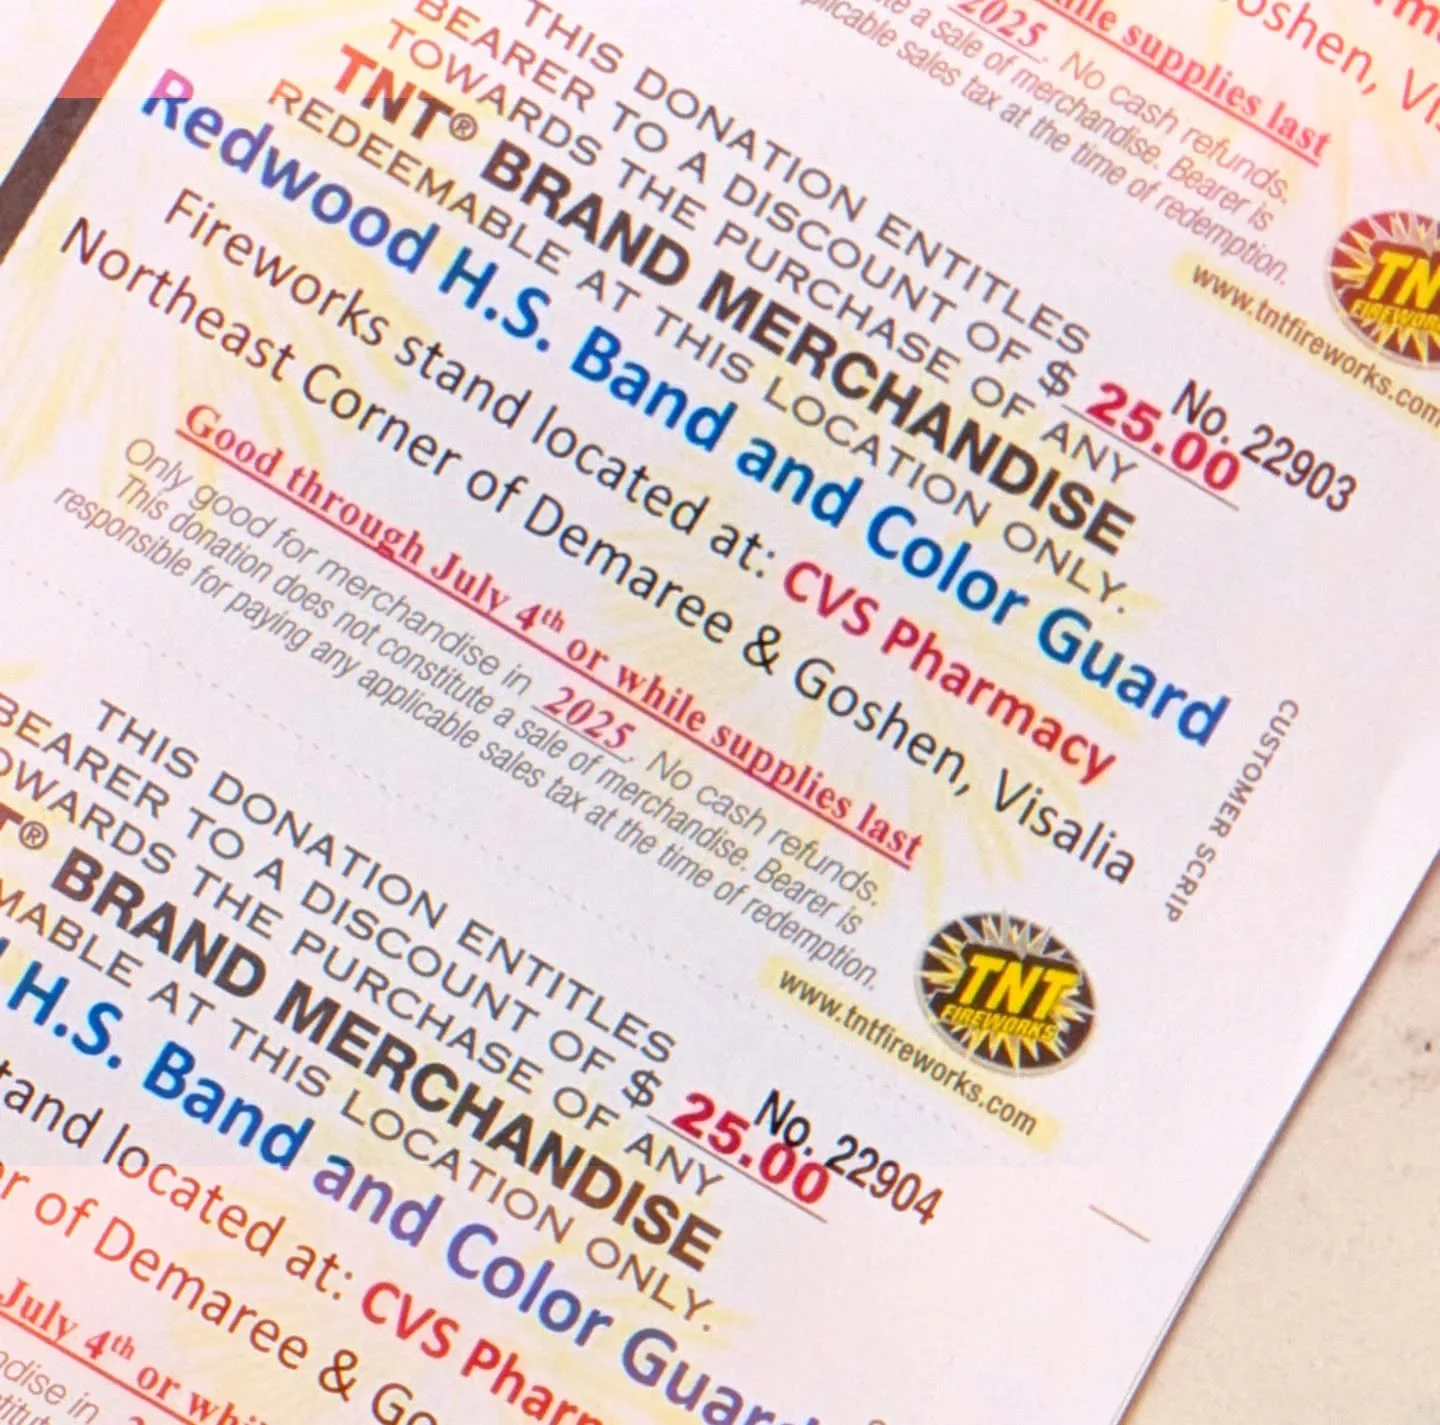 2025. No cash refunds.
while supplies last
a sale of merchandise. Bearer is
sales tax at the time of redemption.
Goshen,
www.tntfireworks.com
THIS DONATION ENTITLES
BEARER TO A DISCOUNT OF $ 25.00
TOWARDS THE PURCHASE OF ANY
TNT® BRAND MERCHANDISE
REDEEMABLE AT THIS LOCATION ONLY.
No. 22903
Redwood H.S. Band and Color Guard
Fireworks stand located at: CVS Pharmacy
Northeast Corner of Demaree & Goshen, Visalia
Good through July 4th or while supplies last
Only good for merchandise in 2025. No cash refunds.
This donation does not constitute a sale of merchandise. Bearer is
responsible for paying any applicable sales tax at the time of redemption.
CUSTOMER SCRIP
TNT
FIREWORKS
www.tntfireworks.com
THIS DONATION ENTITLES
BEARER TO A DISCOUNT OF $ 25.00
TOWARDS THE PURCHASE OF ANY
® BRAND MERCHANDISE
AT THIS LOCATION ONLY.
No. 22904
H.S. Band and Color Guard
located at: CVS
of Demaree &
July 4th or